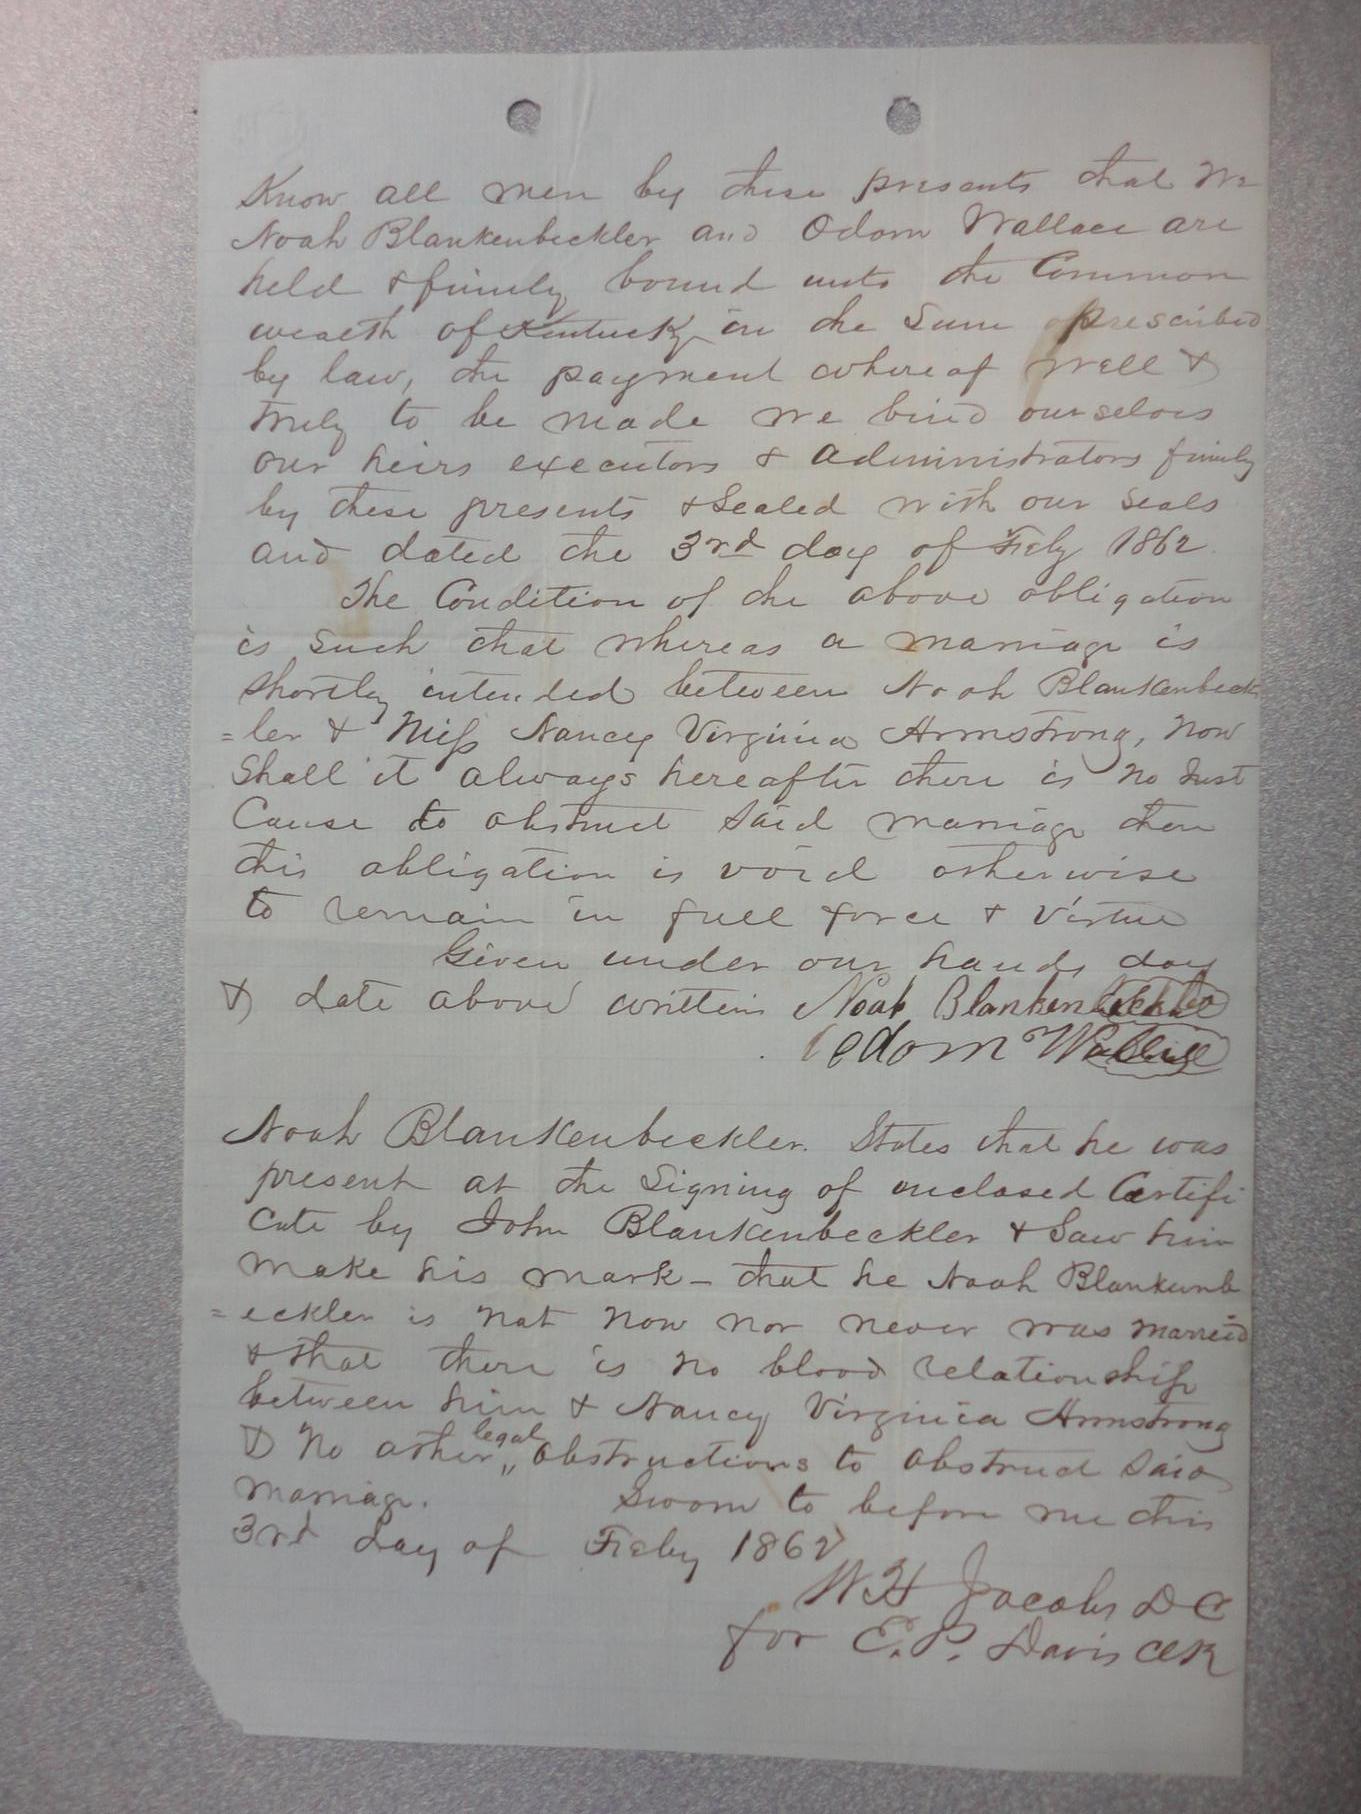 Know all men by these presents that We
Noah Blankenbeckler and Odom Wallace are
held & firmly bound unto the Common
wealth of Kentucky in the Sum prescribed
by law, the payment whereof well &
truly to be made we bind ourselves
our heirs executors & administrators firmly
by these presents & Sealed with our seals
and dated the 3rd day of Feby 1862
The Condition of the above obligation
is Such that whereas a marriage is
Shortly intended between Noah Blankenbeck
=ler & Miss Nancy Virginia Armstrong, Now
Shall it always hereafter there is no Just
Cause to obstruct said marriage then
this obligation is void otherwise
to remain in full force & virtue
Given under our hands day
& date above written Noah Blankenbeckler
Odom Wallace
Noah Blankenbeckler. States that he was
present at the Signing of enclosed Certifi
cate by John Blankenbeckler & Saw him
make his mark – that he Noah Blankenb
=eckler is not now nor never was married
& that there is no blood relationship
between him & Nancy Virginia Armstrong
& No other legal obstructions to obstruct said
marriage. Sworn to before me this
3rd day of Feby 1862
W H Jacobs D C
for E. P. Davis Clk